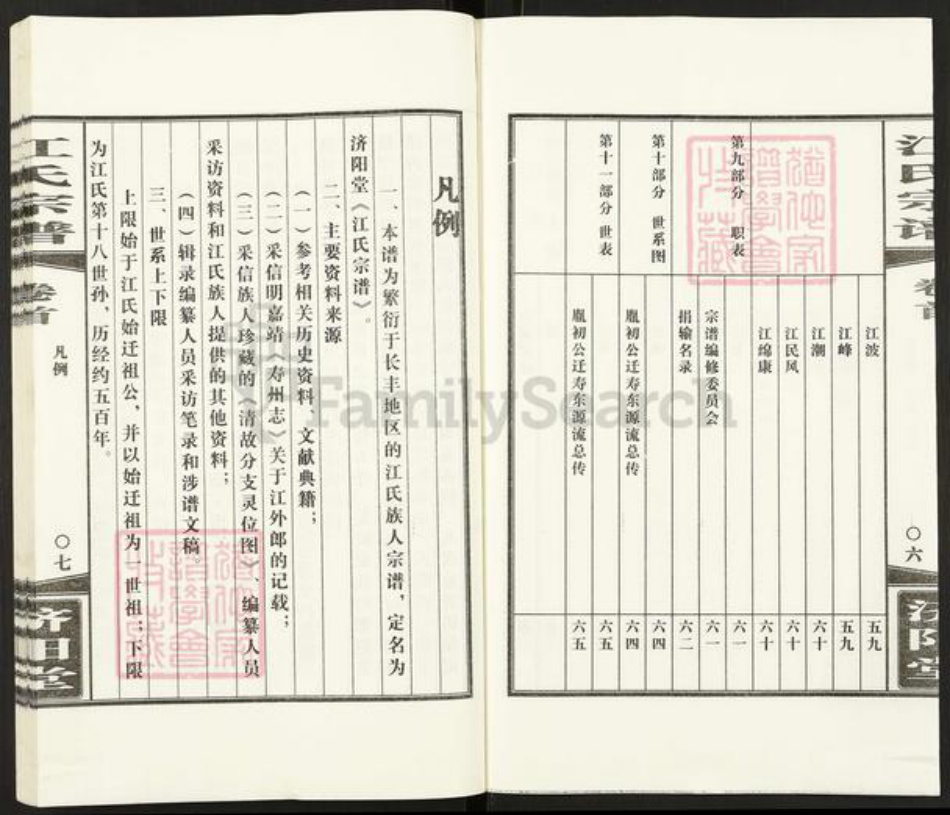 江氏宗谱
卷首
〇六
济阳堂
江波 五九
江峰 五九
江潮 六十
江民风 六十
江绵康 六十
第九部分 职表 六一
宗谱编修委员会 六一
捐输名录 六二
第十部分 世系图 六四
胤初公迁寿东源流总传 六四
第十一部分 世表 六五
胤初公迁寿东源流总传 六五
凡例
一、本谱为繁衍于长丰地区的江氏族人宗谱，定名为
济阳堂《江氏宗谱》。
二、主要资料来源
（一）参考相关历史资料、文献典籍；
（二）采信明嘉靖《寿州志》关于江外郎的记载；
（三）采信族人珍藏的《清故分支灵位图》、编纂人员
采访资料和江氏族人提供的其他资料；
（四）辑录编纂人员采访笔录和涉谱文稿。
三、世系上下限
上限始于江氏始迁祖公，并以始迁祖为一世祖；下限
为江氏第十八世孙，历经约五百年。
江氏宗谱
卷首
凡例
〇七
济阳堂
FamilySearch